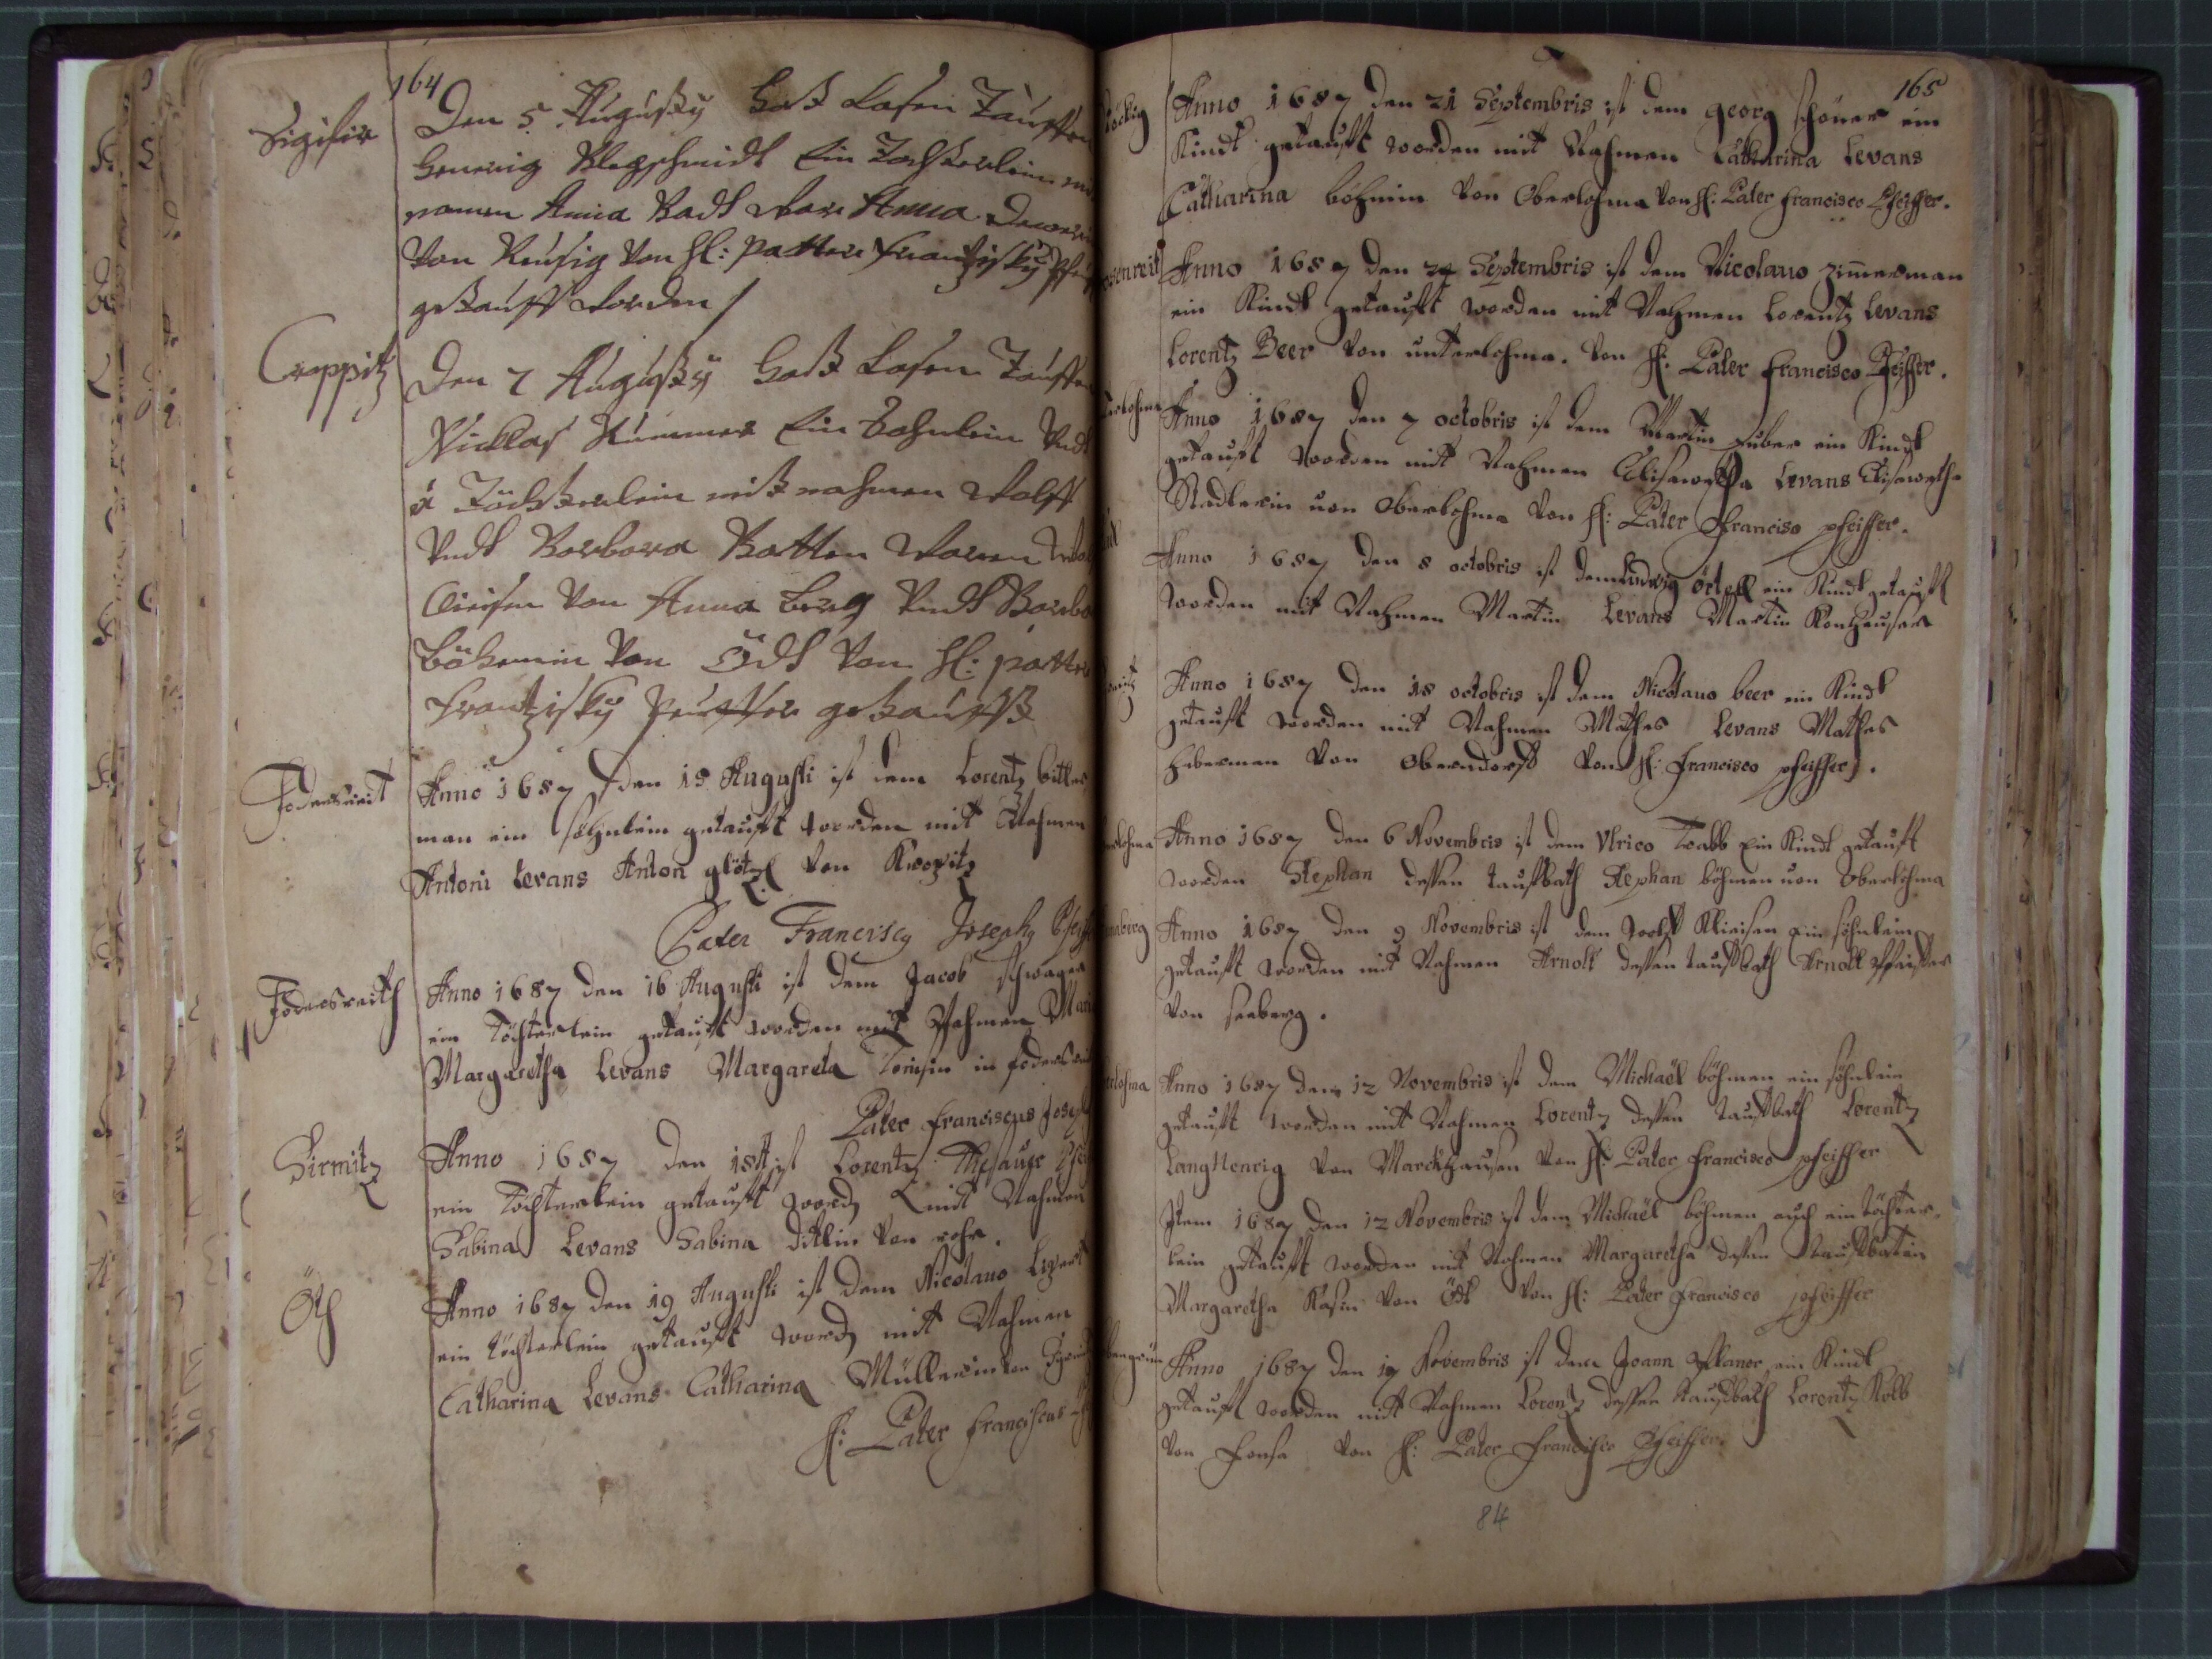 164
Sigihir
Den 5 Augusty hatt lasen Tauffen
Henerig Blegschmidt Ein Tochterlein
namen Anna Badt ware Anna
Von Reusig Von H: Patter Frantzisky
getaufft worden /
Croppitz
Den 7 Augusty hatt lasen Tauffen
Nicklas Kummer Ein Sohnlein Vndt
a Töchterlein mit nahmen Wolff
Vndt Barbara Batten waren
Von Anna berg Vndt
böhemin Von Ödt Von H: patter
Frantzisky Peuffer getaufft
Fodersreit
Anno 1687 den 15 Augusti ist dem Lorentz bitter
man ein söhnlein getaufft worden mit Nahmen
Antoni Levans Anton glötzl Von Kropitz
Pater Franciscy Josephy
Fodersreith
Anno 1687 den 16 Augusti ist dem Jacob schwager
ein Töchterlein getaufft worden mit Nahmen
Margaretha Levans Margareta in
Pater Franciscus
Sirmitz
Anno 1687 den 18 ist Lorentz
ein Töchterlein getaufft word mit Nahmen
Sabina Levans Sabina Von rohr.
Öth
Anno 1687 den 19 Augusti ist dem Nicolauo
ein töchterlein getaufft word mit Nahmen
Catharina Levans Catharina Müllerin Von
H: Pater Franciscus
165
Anno 1687 den 21 Septembris ist dem georg schöner ein
Kindt getaufft worden mit Nahmen Catharina Levans
Catharina böhmin Von Oberlohma Von H: Pater Francisco Pfeiffer.
Anno 1687 den 24 Septembris ist dem Nicolauo zimmerman
ein Kindt getaufft worden mit Nahmen Lorentz Levans
Lorentz Beer Von unterlohma. Von H: Pater Francisco Pfeiffer.
Anno 1687 den 7 octobris ist dem Martin huber ein Kindt
getaufft worden mit Nahmen Elisawetha Levans Elisawetha
Stadlerin uon Oberlohma Von H: Pater Franciso pfeiffer.
Anno 1687 den 8 octobris ist dem Ludwig örtell ein Kindt getaufft
worden mit Nahmen Martin Levans Martin Konheuser
Anno 1687 den 18 octobris ist dem Nicolauo beer ein Kindt
getaufft worden mit Nahmen Mathes Levans Mathes
haberman Von Oberndorff Von H: Francisco pfeiffer.
Anno 1687 den 6 Novembris ist dem Vlrico Trabb Ein Kindt getaufft
worden Stephan dessen tauffbath Stephan böhmen uon Oberlohma
Anno 1687 den 9 Novembris ist dem Wolff ein söhnlein
getaufft worden mit Nahmen Arnolt dessen tauffbath Arnolt
Von seeberg.
Anno 1687 den 12 Novembris ist dem Michaël böhmen ein söhnlein
getaufft worden mit Nahmen Lorentz dessen tauffbath Lorentz
LangHenrig Von Marckhausen Von H: Pater Francisco pfeiffer
Item 1687 den 12 Novembris ist dem Michaël böhmen auch ein töchter-
lein getaufft worden mit Nahmen Margaretha dessen tauffbatin
Margaretha Kasin Von Ödt Von H: Pater Francisco pfeiffer
Anno 1687 den 17 Novembris ist dem Joann Pflaner ein Kindt
getaufft worden mit Nahmen Lorentz dessen tauffbath Lorentz Kolb
Von Fonsa Von H: Pater Francisco Pfeiffer.
84